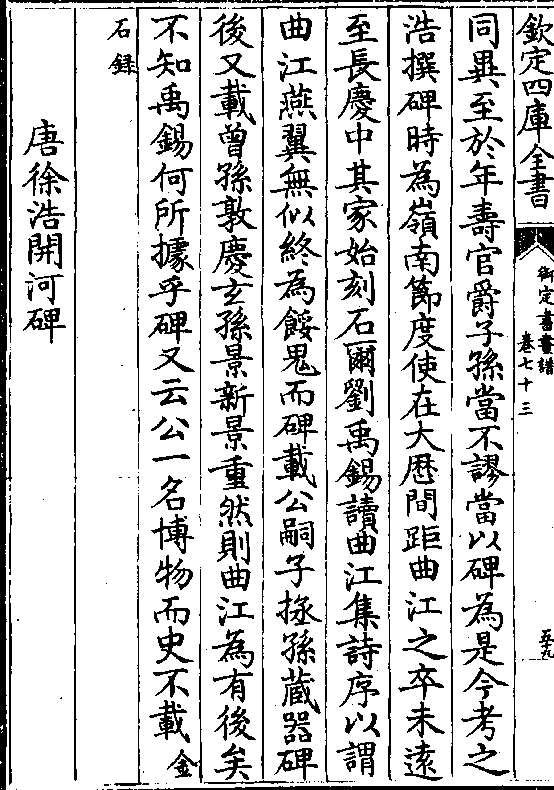 欽定四庫全書
御定書畫譜
卷七十三
五十九
同異至於年壽官爵子孫當不謬當以碑為是今考之
浩撰碑時為嶺南節度使在大厯間距曲江之卒未遠
至長慶中其家始刻石爾劉禹錫讀曲江集詩序以謂
曲江燕翼無似終為餒鬼而碑載公嗣子拯孫藏器碑
後又載曾孫敦慶玄孫景新景重然則曲江為有後矣
不知禹錫何所據乎碑又云公一名博物而史不載金
石錄
唐徐浩開河碑